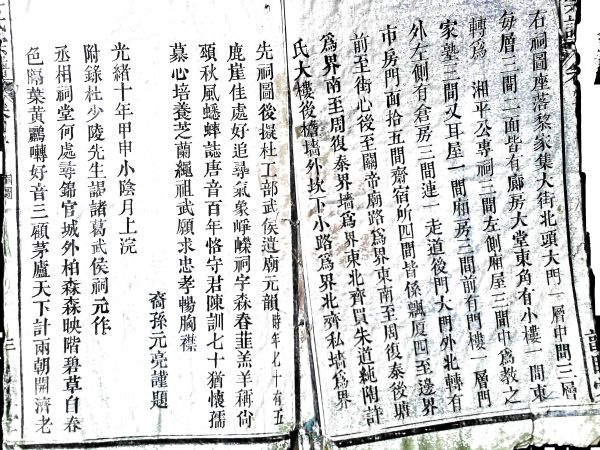 右祠圖座落黎家集大街北頭大門一層中間三層
每層三間二面皆有廊房大堂東角有小樓一間東
轉爲 湘平公專祠三間左側廂屋三間中爲教之
家塾三間又耳屋一間廂房三間前有門樓一層門
外左側有倉房三間連一走道後門大門外北轉有
市房門面拾五間齋宿所四間皆係瓢厦四至邊界
前至街心後至關帝廟路爲界東南至周復泰後墻
爲界南至周復泰界墻爲界東北齊買朱道純陶許
氏大樓後檐墻外坎下小路爲界北齊私墻爲界
先祠圖後擬杜工部武侯遺廟元韻時年七十有五
鹿崖佳處好追尋氣象崢嶸祠宇森春韭羔羊稱尙
頌秋風蟋蟀誌唐音百年恪守君陳訓七十猶懷孺
慕心培養芝蘭繩祖武願求忠孝暢胸襟
裔孫元亮謹題
光緒十年甲申小陰月上浣
附錄杜少陵先生謁諸葛武侯祠元作
丞相祠堂何處尋錦官城外柏森森映階碧草自春
色隔葉黃鸝囀好音三顧茅廬天下計兩朝開濟老